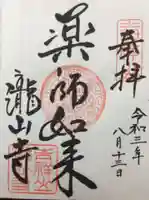 奉拝
令和三年
八月十三日
薬師如来
瀧山寺